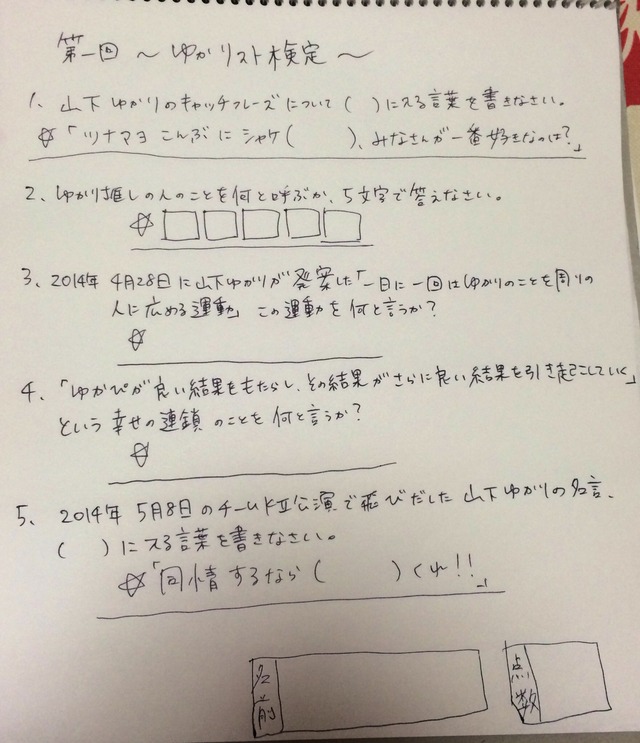 第一回 ～ ゆかリスト検定 ～
1、山下ゆかりのキャッチフレーズについて( )に入る言葉を書きなさい。
☆「ツナマヨ こんぶ に シャケ( )、みなさんが一番好きなのは?」
2、ゆかり推しの人のことを何と呼ぶか、5文字で答えなさい。
☆ □□□□□
3、2014年 4月28日に山下ゆかりが発案した「一日に一回はゆかりのことを周りの
人に広める運動」この運動を何と言うか?
☆
4、「ゆかぴが良い結果をもたらし、その結果がさらに良い結果を引き起こしていく」
という幸せの連鎖のことを何と言うか?
☆
5、2014年 5月8日のチームKⅡ公演で飛びだした山下ゆかりの名言、
( )に入る言葉を書きなさい。
☆「同情するなら( )くれ!!」
名前 点数